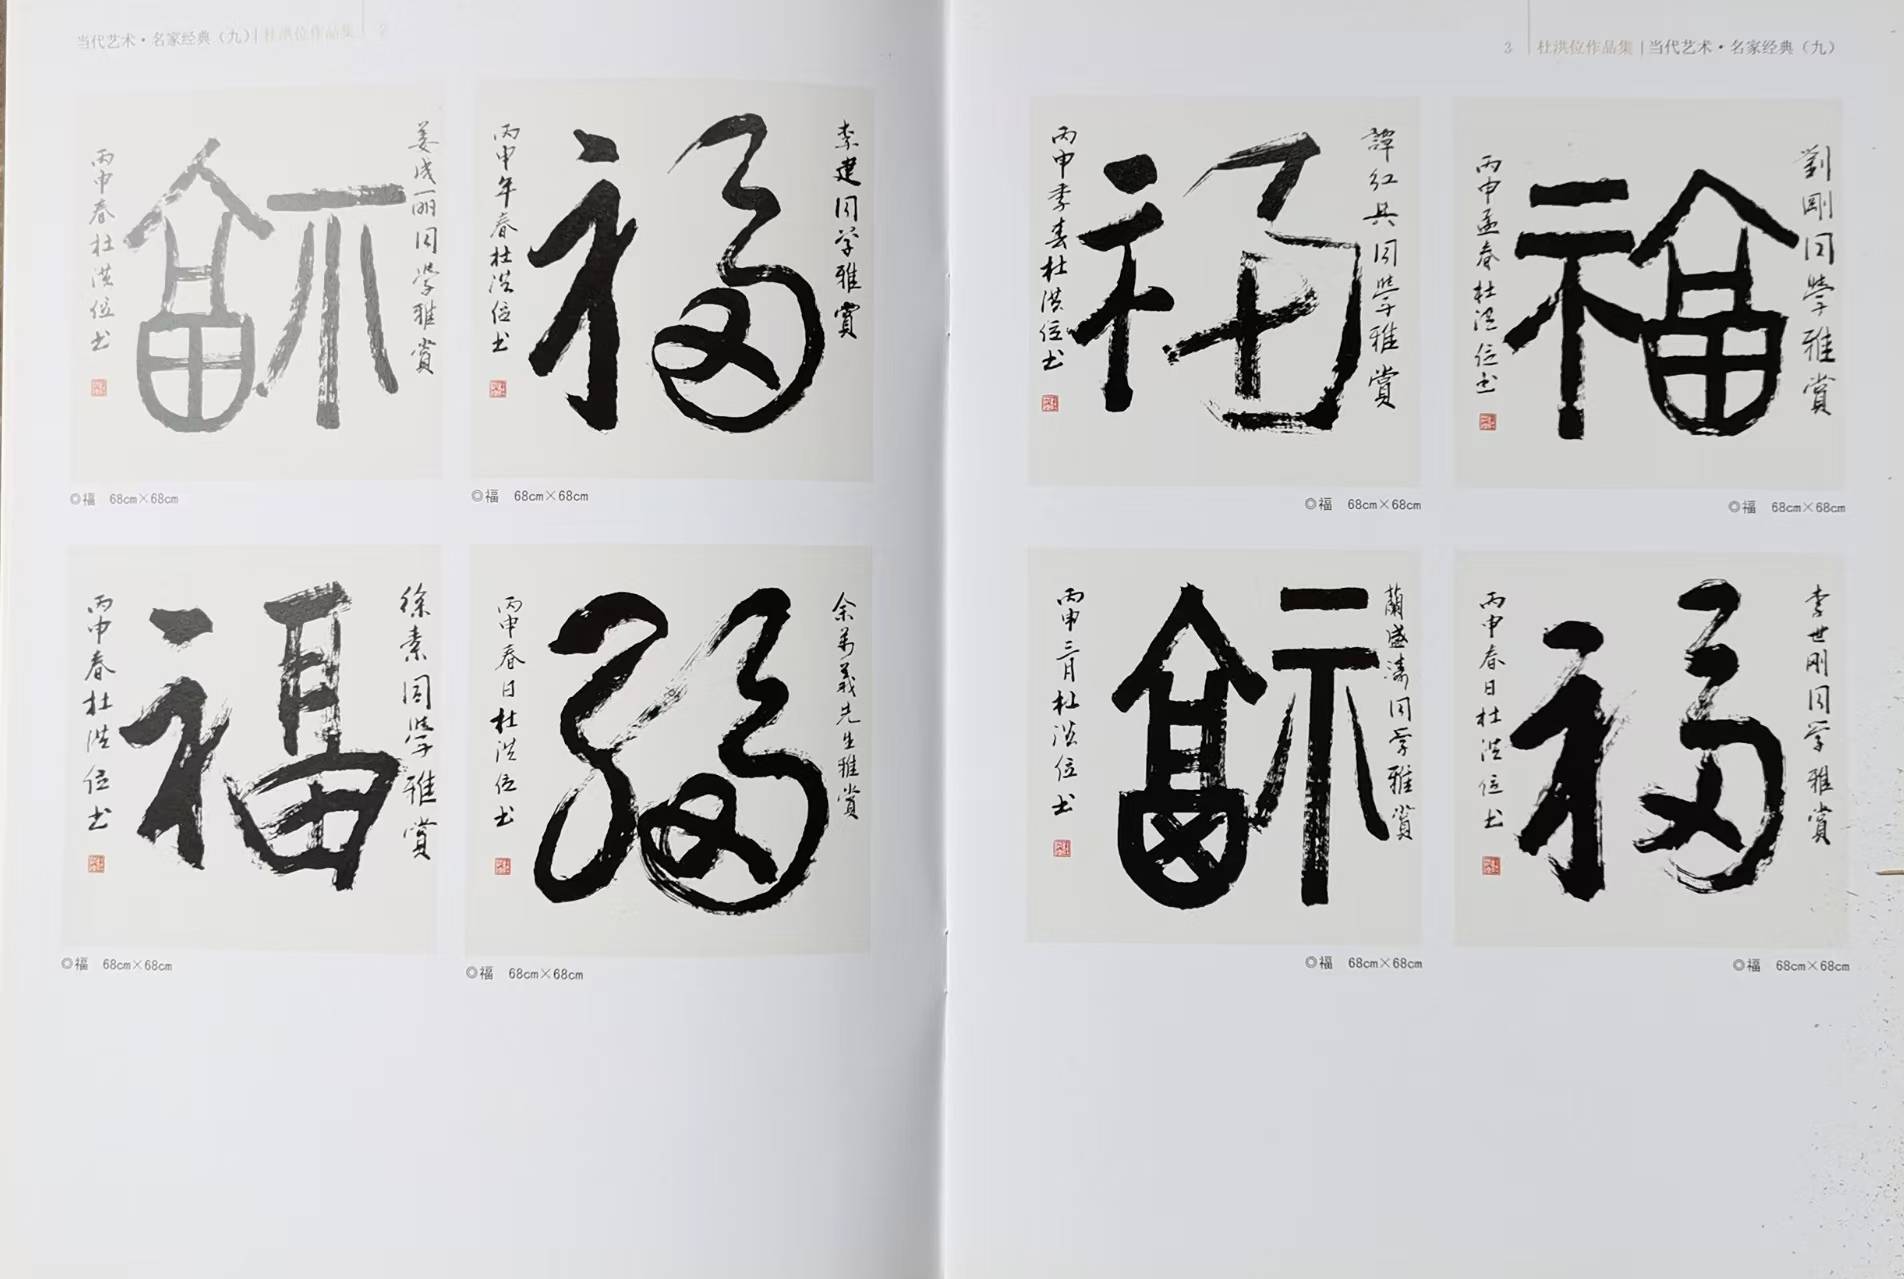 当代艺术·名家经典（九）| 杜洪位作品集 | 2
姜成丽同学雅赏
福
丙申春杜洪位书
◎福 68cm×68cm
李建同学雅赏
福
丙申年春杜洪位书
◎福 68cm×68cm
徐素同學雅賞
福
丙申春杜洪位书
◎福 68cm×68cm
余弟義先生雅賞
福
丙申春日杜洪位书
◎福 68cm×68cm
3 | 杜洪位作品集 | 当代艺术·名家经典（九）
譚红兵同學雅賞
福
丙申季春杜洪位书
◎福 68cm×68cm
劉剛同學雅賞
福
丙申孟春杜洪位书
◎福 68cm×68cm
蘭盛濤同学雅賞
福
丙申三月杜洪位书
◎福 68cm×68cm
李世刚同学雅赏
福
丙申春日杜洪位书
◎福 68cm×68cm